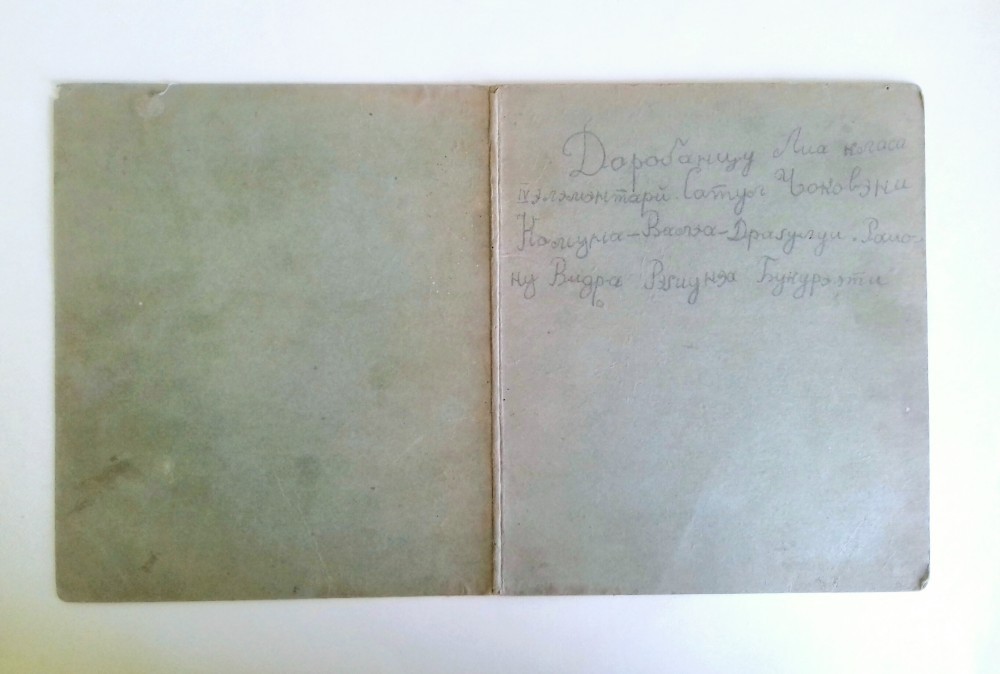 Доробанцу Лиа класа
IV элэмэнтарй. Сатул Чоковэни
Комуна-Валэа-Драгулуй. Райо
ну Видра Рэгиунэа Букурээти